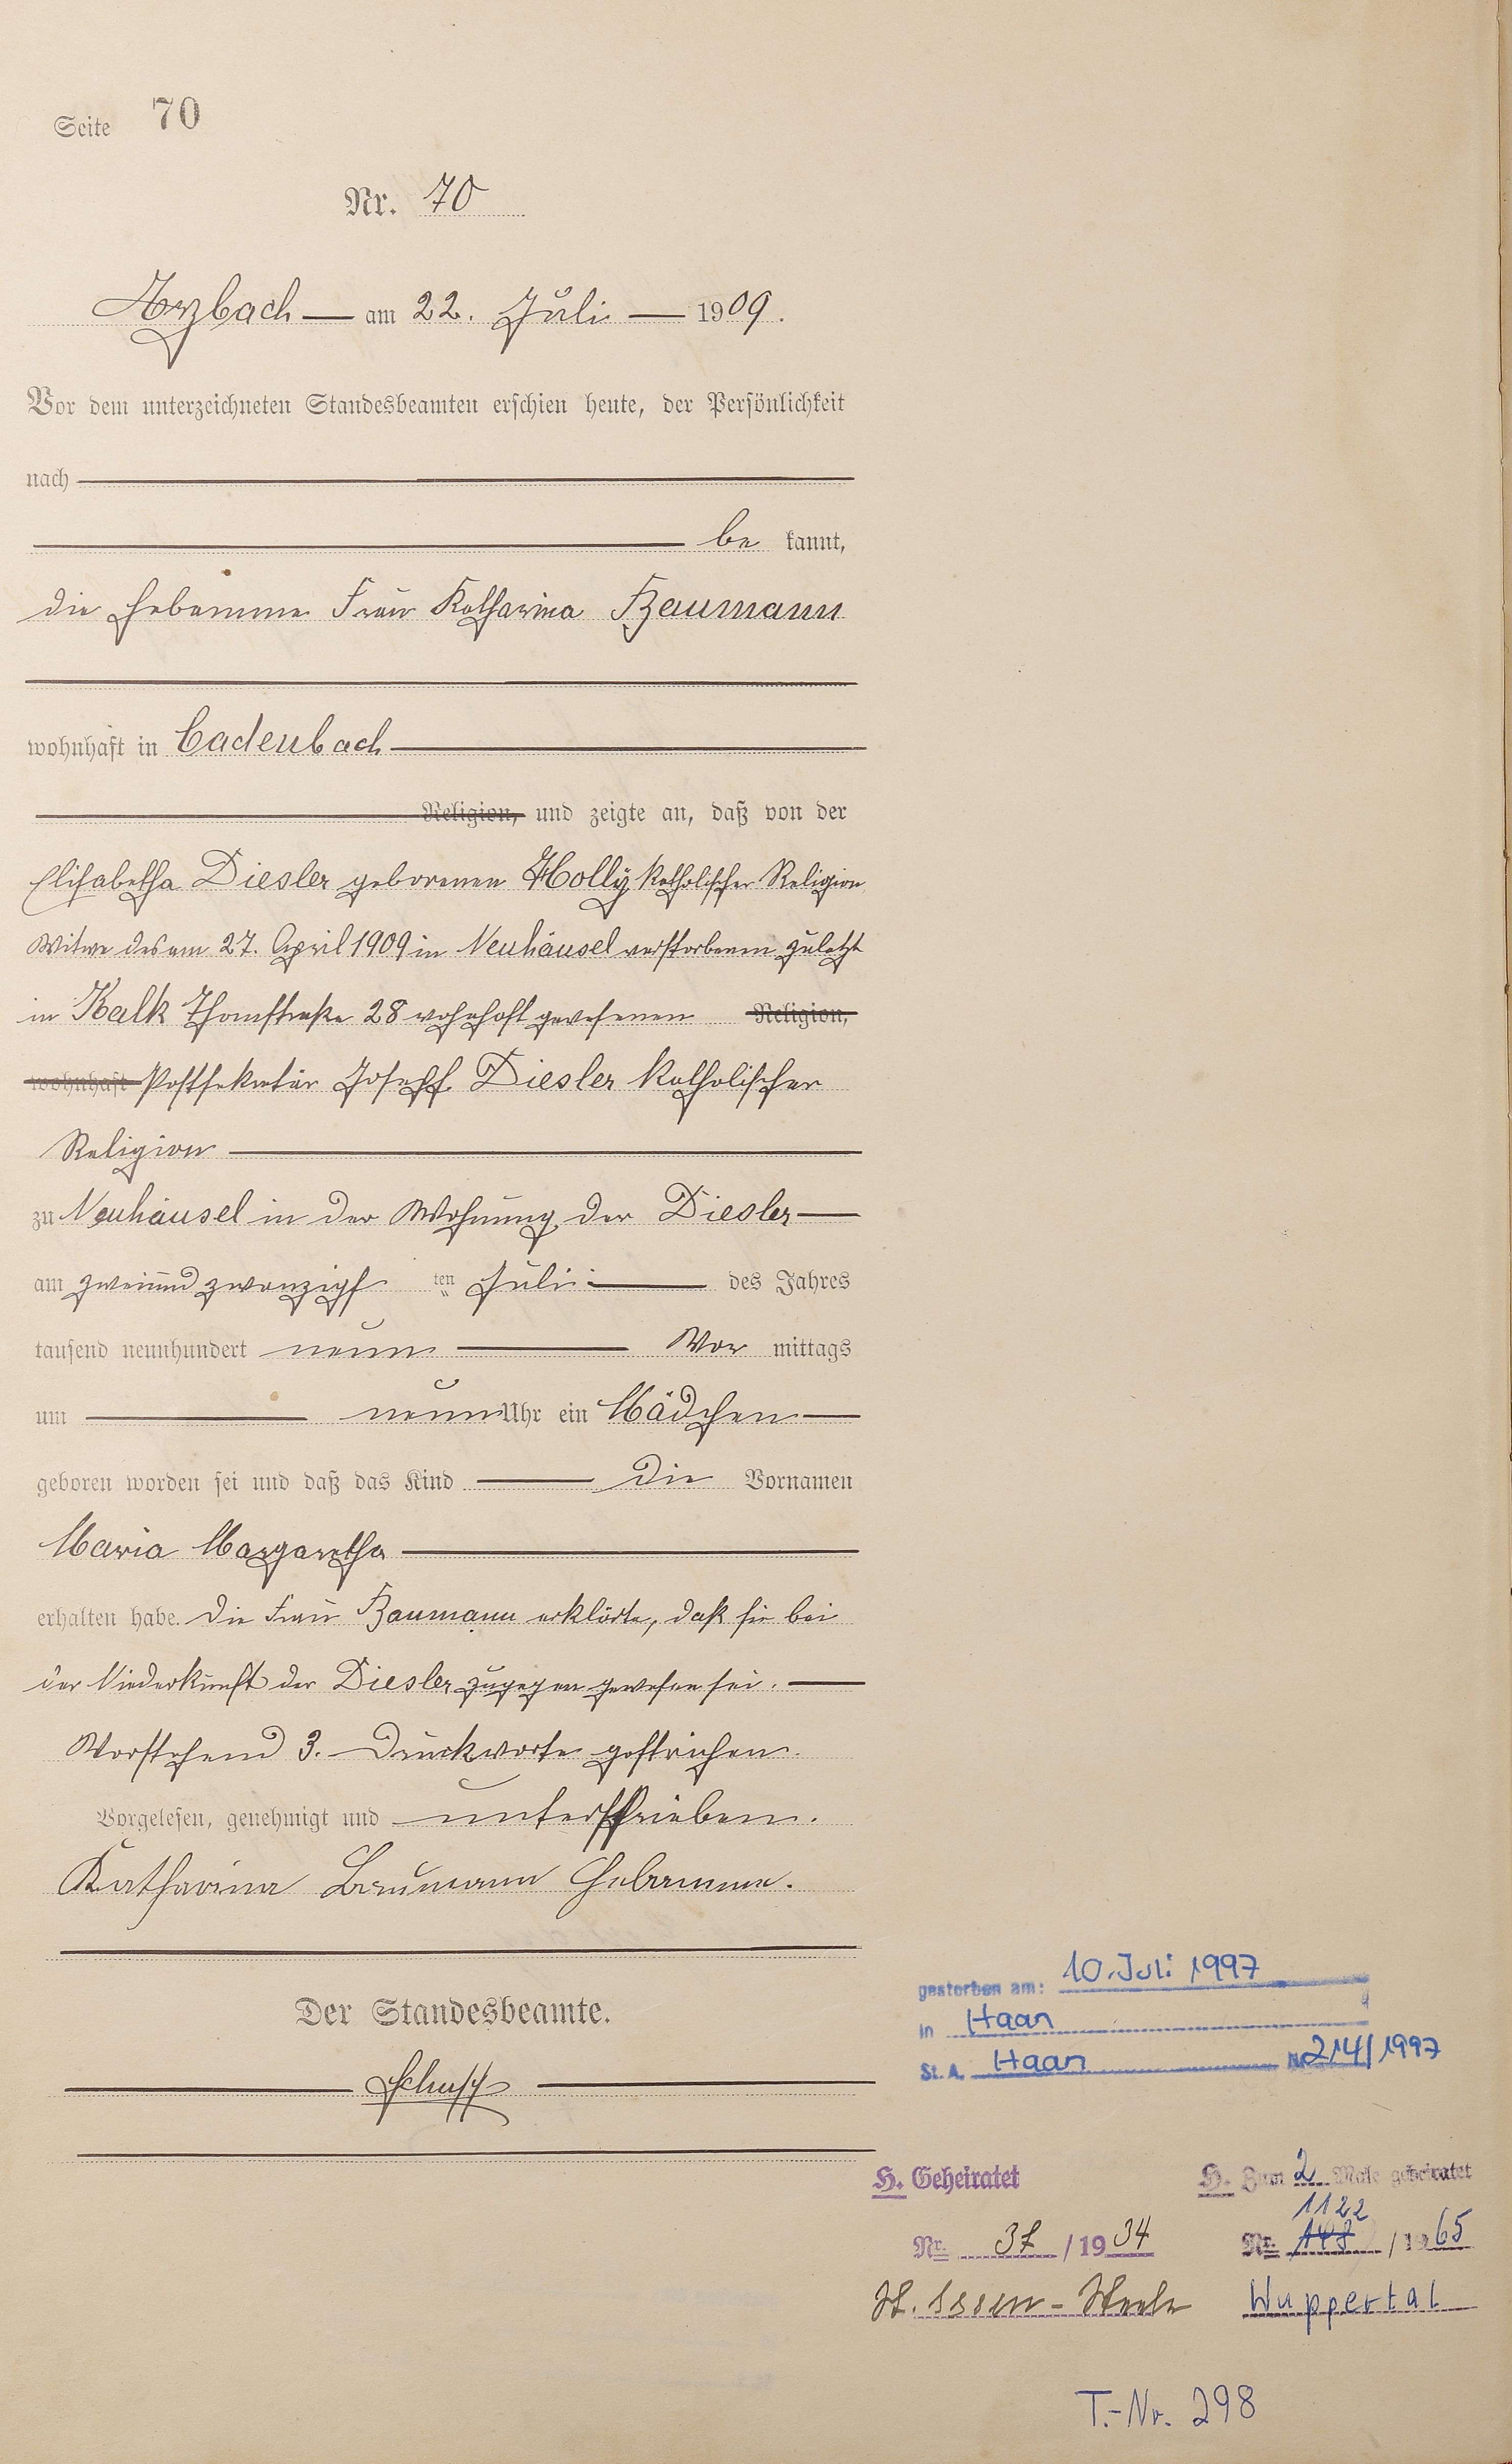 Seite 70
Nr. 70
Arzbach am 22. Juli 1909.
Vor dem unterzeichneten Standesbeamten erschien heute, der Persönlichkeit
nach
be kannt,
die Hebamme Frau Katharina Baumann
wohnhaft in Cadenbach
Religion, und zeigte an, daß von der
Elisabetha Diesler geborenen Holly katholischer Religion
Witwe des am 27. April 1909 in Neuhäusel verstorbenen zuletzt
in Kalk 28 wohnhaft gewesenen Religion,
wohnhaft Postsekretär Joseph Diesler katholischer
Religion
zu Neuhäusel in der Wohnung der Diesler
am zweiund zwanzigs ten Juli des Jahres
tausend neunhundert neun Vor mittags
um neun Uhr ein Mädchen
geboren worden sei und daß das Kind die Vornamen
Maria Margaretha
erhalten habe. Die Frau Baumann erklärte, daß sie bei
der Niederkunft der Diesler zugegen gewesen sei.
Vorstehend 3. Druckworte gestrichen.
Vorgelesen, genehmigt und unterschrieben.
Katharina Baumann Hebamme.
Der Standesbeamte.
gestorben am: 10. Juli 1997
in Haan
St. A. Haan Nr. 214/1997
H. Geheiratet
Nr. 37 / 19 34
St. Essen - Steele
H. Zum 2 Male geheiratet
1122
Nr. / 19 65
Wuppertal
T.-Nr. 298